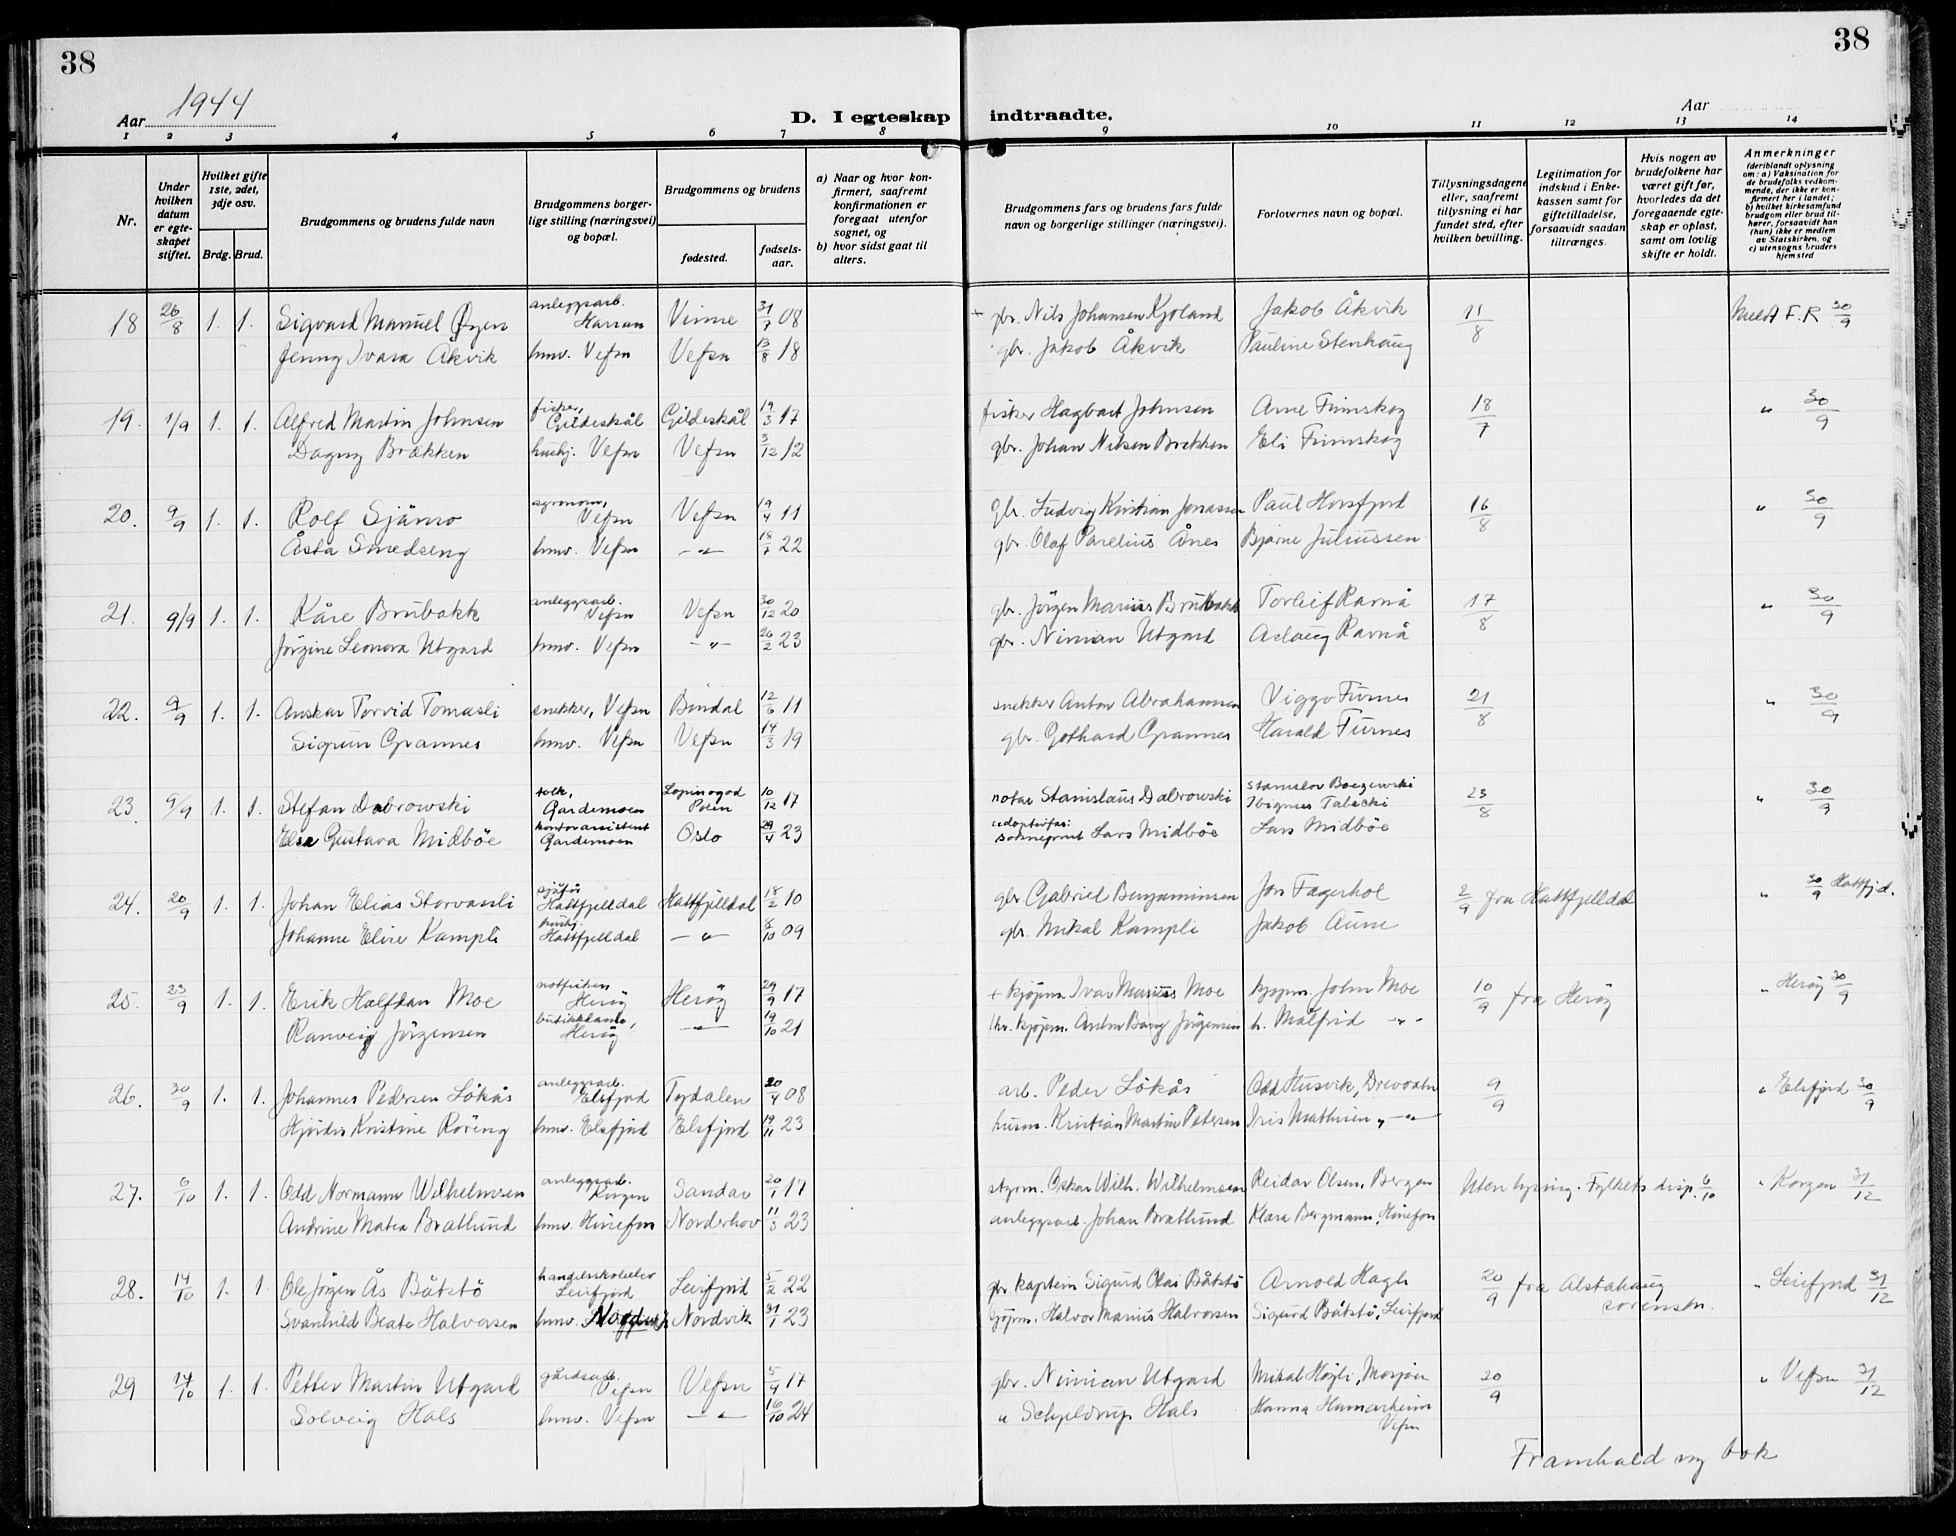 38
38
Aar 1944
D. I egteskap indtraadte.
Aar
1 2 3 4 5 6 7 8 9 10 11 12 13 14
Nr.
Under hvilken datum er egteskapet stiftet.
Hvilket gifte 1ste, 2det, 3dje osv.
Brdg. Brud.
Brudgommens og brudens fulde navn
Brudgommens borgerlige stilling (næringsvei) og bopæl.
Brudgommens og brudens
fødested.
fødselsaar.
a) Naar og hvor konfirmert, saafremt konfirmationen er foregaat utenfor sognet, og
b) hvor sidst gaat til alters.
Brudgommens fars og brudens fars fulde navn og borgerlige stillinger (næringsvei).
Forlovernes navn og bopæl.
Tillysningsdagene eller, saafremt tillysning ei har fundet sted, efter hvilken bevilling.
Legitimation for indskud i Enkekassen samt for giftetilladelse, forsaavidt saadan tiltrænges.
Hvis nogen av brudefolkene har været gift før, hvorledes da det foregaaende egteskap er opløst, samt om lovlig skifte er holdt.
Anmerkninger (deriblandt oplysning om: a) Vaksination for de brudefolks vedkommende, der ikke er konfirmert her i landet; b) hvilket kirkesamfund brudgom eller brud tilhører, forsaavidt han (hun) ikke er medlem av Statskirken, og c) utensogns bruders hjemsted
18 26/8 1. 1. Sigvard Manuel Øyen anleggsarb. Harran Vinne 31/7 08 + gbr. Nils Johansen Kjoland Jakob Åkvik 21/8 Meldt F.R 30/9
Jenny Ivara Åkvik hmv. Vefsn Vefsn 13/8 18 gbr. Jakob Åkvik Pauline Stenhaug
19. 1/9 1. 1. Alfred Martin Johnsen fisker, Gildeskål Gildeskål 19/3 17 fisker Hagbart Johnsen Arne Finnskog 18/7 " 30/9
Dagny Brækken hushj. Vefsn Vefsn 3/12 12 gbr. Johan Nilsen Brekken Eli Finnskog
20. 9/9 1. 1. Rolf Sjåmo agronom, Vefsn Vefsn 19/4 11 gbr. Ludvig Kristian Jonassen Paul Horsfjord 16/8 " 30/9
Åsta Smedseng hmv. Vefsn — " — 18/7 22 gbr. Olaf Parelius Ånes Bjarne Juliussen
21. 9/9 1. 1. Kåre Brubakk anleggsarb. Vefsn Vefsn 30/12 20 gbr. Jörgen Marius Brubakk Torleif Ravnå 17/8 " 30/9
Jörgine Leonora Utgard hmv. Vefsn — " — 26/2 23 gbr. Nimian Utgard Aslaug Ravnå
22. 9/9 1. 1. Anskar Torvid Tomasli snekker, Vefsn Bindal 12/6 11 snekker Anton Abrahamsen Viggo Furnes 21/8 " 30/9
Sigrun Grannes hmv. Vefsn Vefsn 14/3 19 gbr. Gothard Grannes Harald Furnes
23. 9/9 1. 1. Stefan Dabrowski tolk, Gardemoen Polen 10/12 17 notar Stanislaus Dabrowski 23/8 " 30/9
Else Gustava Midböe kontorassistent Gardemoen Oslo 29/4 23 sokneprest Lars Midböe Lars Midböe
24. 20/9 1. 1. Johan Elias Storvassli sjåför Hattfjelldal Hattfjelldal 18/2 10 gbr Gabriel Benjaminsen Jon Fagerhol 2/9 fra Hattfjelldal " 30/9 Hattfjd.
Johanne Elise Kampli hushj. Hattfjelldal — " — 8/10 09 gbr. Mikal Kampli Jakob Aune
25. 23/9 1. 1. Erik Halfdan Moe notfisker Heröy Heröy 29/9 17 + kjöpm. Ivar Marius Moe kjöpm. John Moe 10/9 fra Heröy " Heröy 30/9
Ranveig Jörgensen butikkdame, Heröy — " — 19/10 21 kjöpm. Anton Bang Jörgensen h. Målfrid — " —
26. 30/9 1. 1. Johannes Pedersen Lökås anleggsarb. Elsfjord Tydalen 20/4 08 arb. Peder Lökås Odd Husvik, Drevvatn 9/9 " Elsfjord 30/9
Hjördis Kristine Röreng hmv. Elsfjord Elsfjord 19/11 23 husm. Kristian Martin Petersen Iris Mathisen, — " —
27. 6/10 1. 1. Odd Normann Wilhelmsen anleggsarb. Korgen Sandar 20/1 17 styrm. Oskar Wilh. Wilhelmsen Reidar Olsen, Bergen Uten lysning. Fylkets disp. 6/10 " Korgen 31/12
Andrine Matea Bratlund hmv. Hönefoss Norderhov 11/3 23 anleggsarb. Johan Bratlund Klara Bergmann, Hönefoss
28. 14/10 1. 1. Ole Jörgen Ås Båtstö handelsskoleelev Leirfjord Leirfjord 5/2 22 kaptein Sigurd Olai Båtstö Arnold Hagh 20/9 fra Alstahaug sorenskr. " Leirfjord 31/12
Svanhild Beate Halvorsen hmv. Nordvik 31/1 23 kjöpm. Halvor Marius Halvorsen Sigurd Båtstö, Leirfjord
29 14/10 1. 1. Petter Martin Utgard gårdsarb. Vefsn Vefsn 5/4 17 gbr. Nimian Utgard Mikal Högli, Mosjöen 20/9 " Vefsn 31/12
Solveig Hals hmv. Vefsn — " — 16/10 24 " Schjeldrup Hals Hanna Hamarheim Vefsn
Framhald ny bok